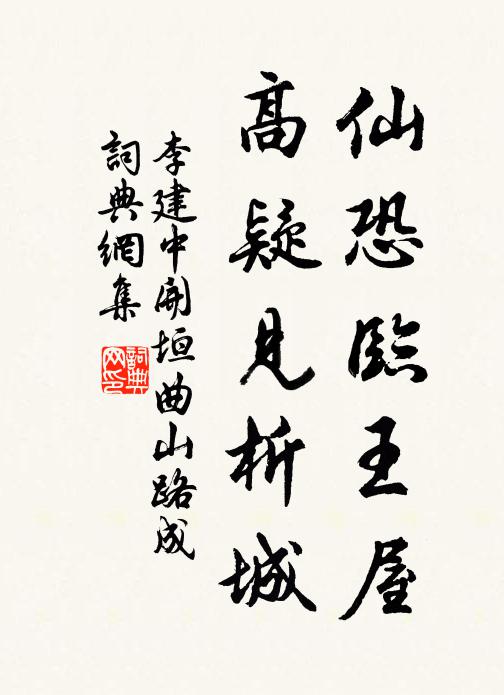 仙恐臨王屋
高疑見析城
李建中開垣曲山路成
詞典網集
詞典網印